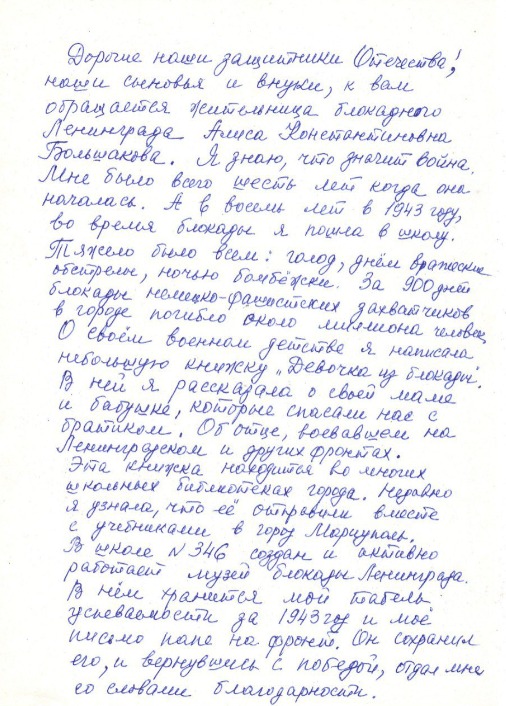 Дорогие наши защитники Отечества!,
наши сыновья и внуки, к вам
обращается жительница блокадного
Ленинграда Алиса Константиновна
Большакова. Я знаю, что значит война.
Мне было всего шесть лет когда она
началась. А в восемь лет в 1943 году,
во время блокады я пошла в школу.
Тяжело было всем: голод, днём вражеские
обстрелы, ночью бомбёжки. За 900 дней
блокады немецко-фашистских захватчиков
в городе погибло около миллиона человек
О своём военном детстве я написала
небольшую книжку „Девочка из блокады".
В ней я рассказала о своей маме
и бабушке, которые спасали нас с
братиком. Об отце, воевавшем на
Ленинградском и других фронтах.
Эта книжка находится во многих
школьных библиотеках города. Недавно
я узнала, что её отправили вместе
с учебниками в город Мариуполь.
В школе N 346 создан и активно
работает музей блокады Ленинграда.
В нём хранится мой табель
успеваемости за 1943 год и моё
письмо папе на фронт. Он сохранил
его, и вернувшись с победой, отдал мне
со словами благодарности.